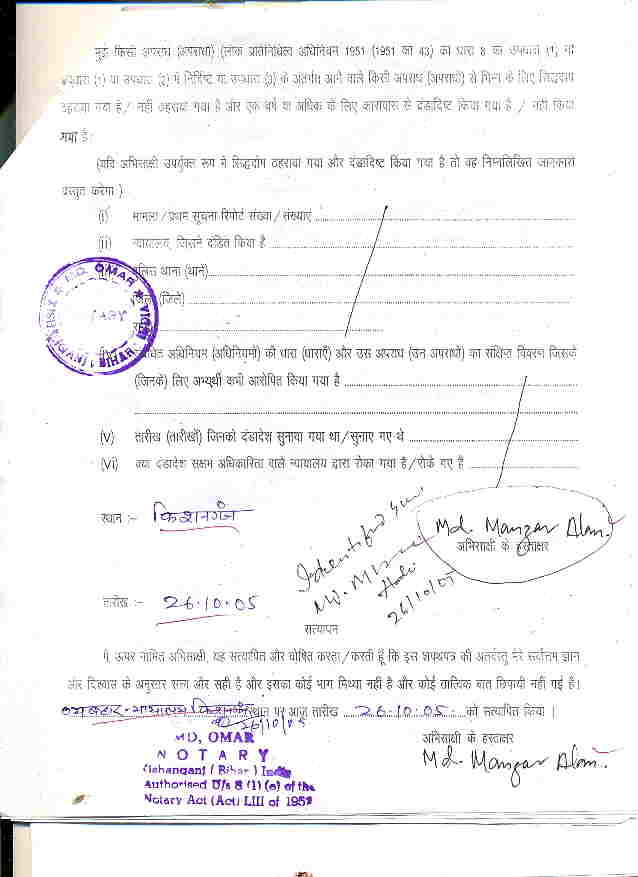 मुझे किसी अपराध (अपराधों) (लोक प्रतिनिधित्व अधिनियम 1951 (1951 का 43) की धारा 8 की उपधारा (1) या
उपधारा (1) या उपधारा (2) में निर्दिष्ट या उपधारा (3) के अंतर्गत आने वाले किसी अपराध (अपराधों) से भिन्न के लिए सिद्धदोष
ठहराया गया है / नहीं ठहराया गया है और एक वर्ष या अधिक के लिए कारावास से दंडादिष्ट किया गया है / नहीं किया
गया है।
(यदि अभिसाक्षी उपर्युक्त रूप में सिद्धदोष ठहराया गया और दंडादिष्ट किया गया है तो वह निम्नलिखित जानकारी
प्रस्तुत करेगा )
(i) मामला/प्रथम सूचना रिपोर्ट संख्या/संख्याएं
(ii) न्यायालय, जिसने दंडित किया है
पुलिस थाना (थाने)
(जिले)
MD. OMAR
BIHAR
अधिनियम (अधिनियमों) की धारा (धाराएँ) और उस अपराध (उन अपराधों) का संक्षिप्त विवरण जिसके
(जिनके) लिए अभ्यर्थी कभी आरोपित किया गया है
(V) तारीख (तारीखों) जिनको दंडादेश सुनाया गया था/सुनाए गए थे
(Vi) क्या दंडादेश सक्षम अधिकारिता वाले न्यायालय द्वारा रोका गया है/रोके गए हैं
स्थान :- किशनगंज
Identified
26/10/05
Md. Manzar Alam.
अभिसाक्षी के हस्ताक्षर
तारीख :- 26.10.05
सत्यापन
मैं, ऊपर नामित अभिसाक्षी, यह सत्यापित और घोषित करता/करती हूँ कि इस शपथपत्र की अंतर्वस्तु मेरे सर्वोत्तम ज्ञान
और विश्वास के अनुसार सत्य और सही है और इसका कोई भाग मिथ्या नहीं है और कोई तात्विक बात छिपायी नहीं गई है।
व्यवहार-न्यायालय किशनगंज स्थान पर आज तारीख 26.10.05 को सत्यापित किया।
26/10/05
MD, OMAR
NOTARY
Kishanganj ( Bihar ) India
Authorised U/s 8 (1) (e) of the
Notary Act (Act) LIII of 1952
अभिसाक्षी के हस्ताक्षर
Md. Manzar Alam.